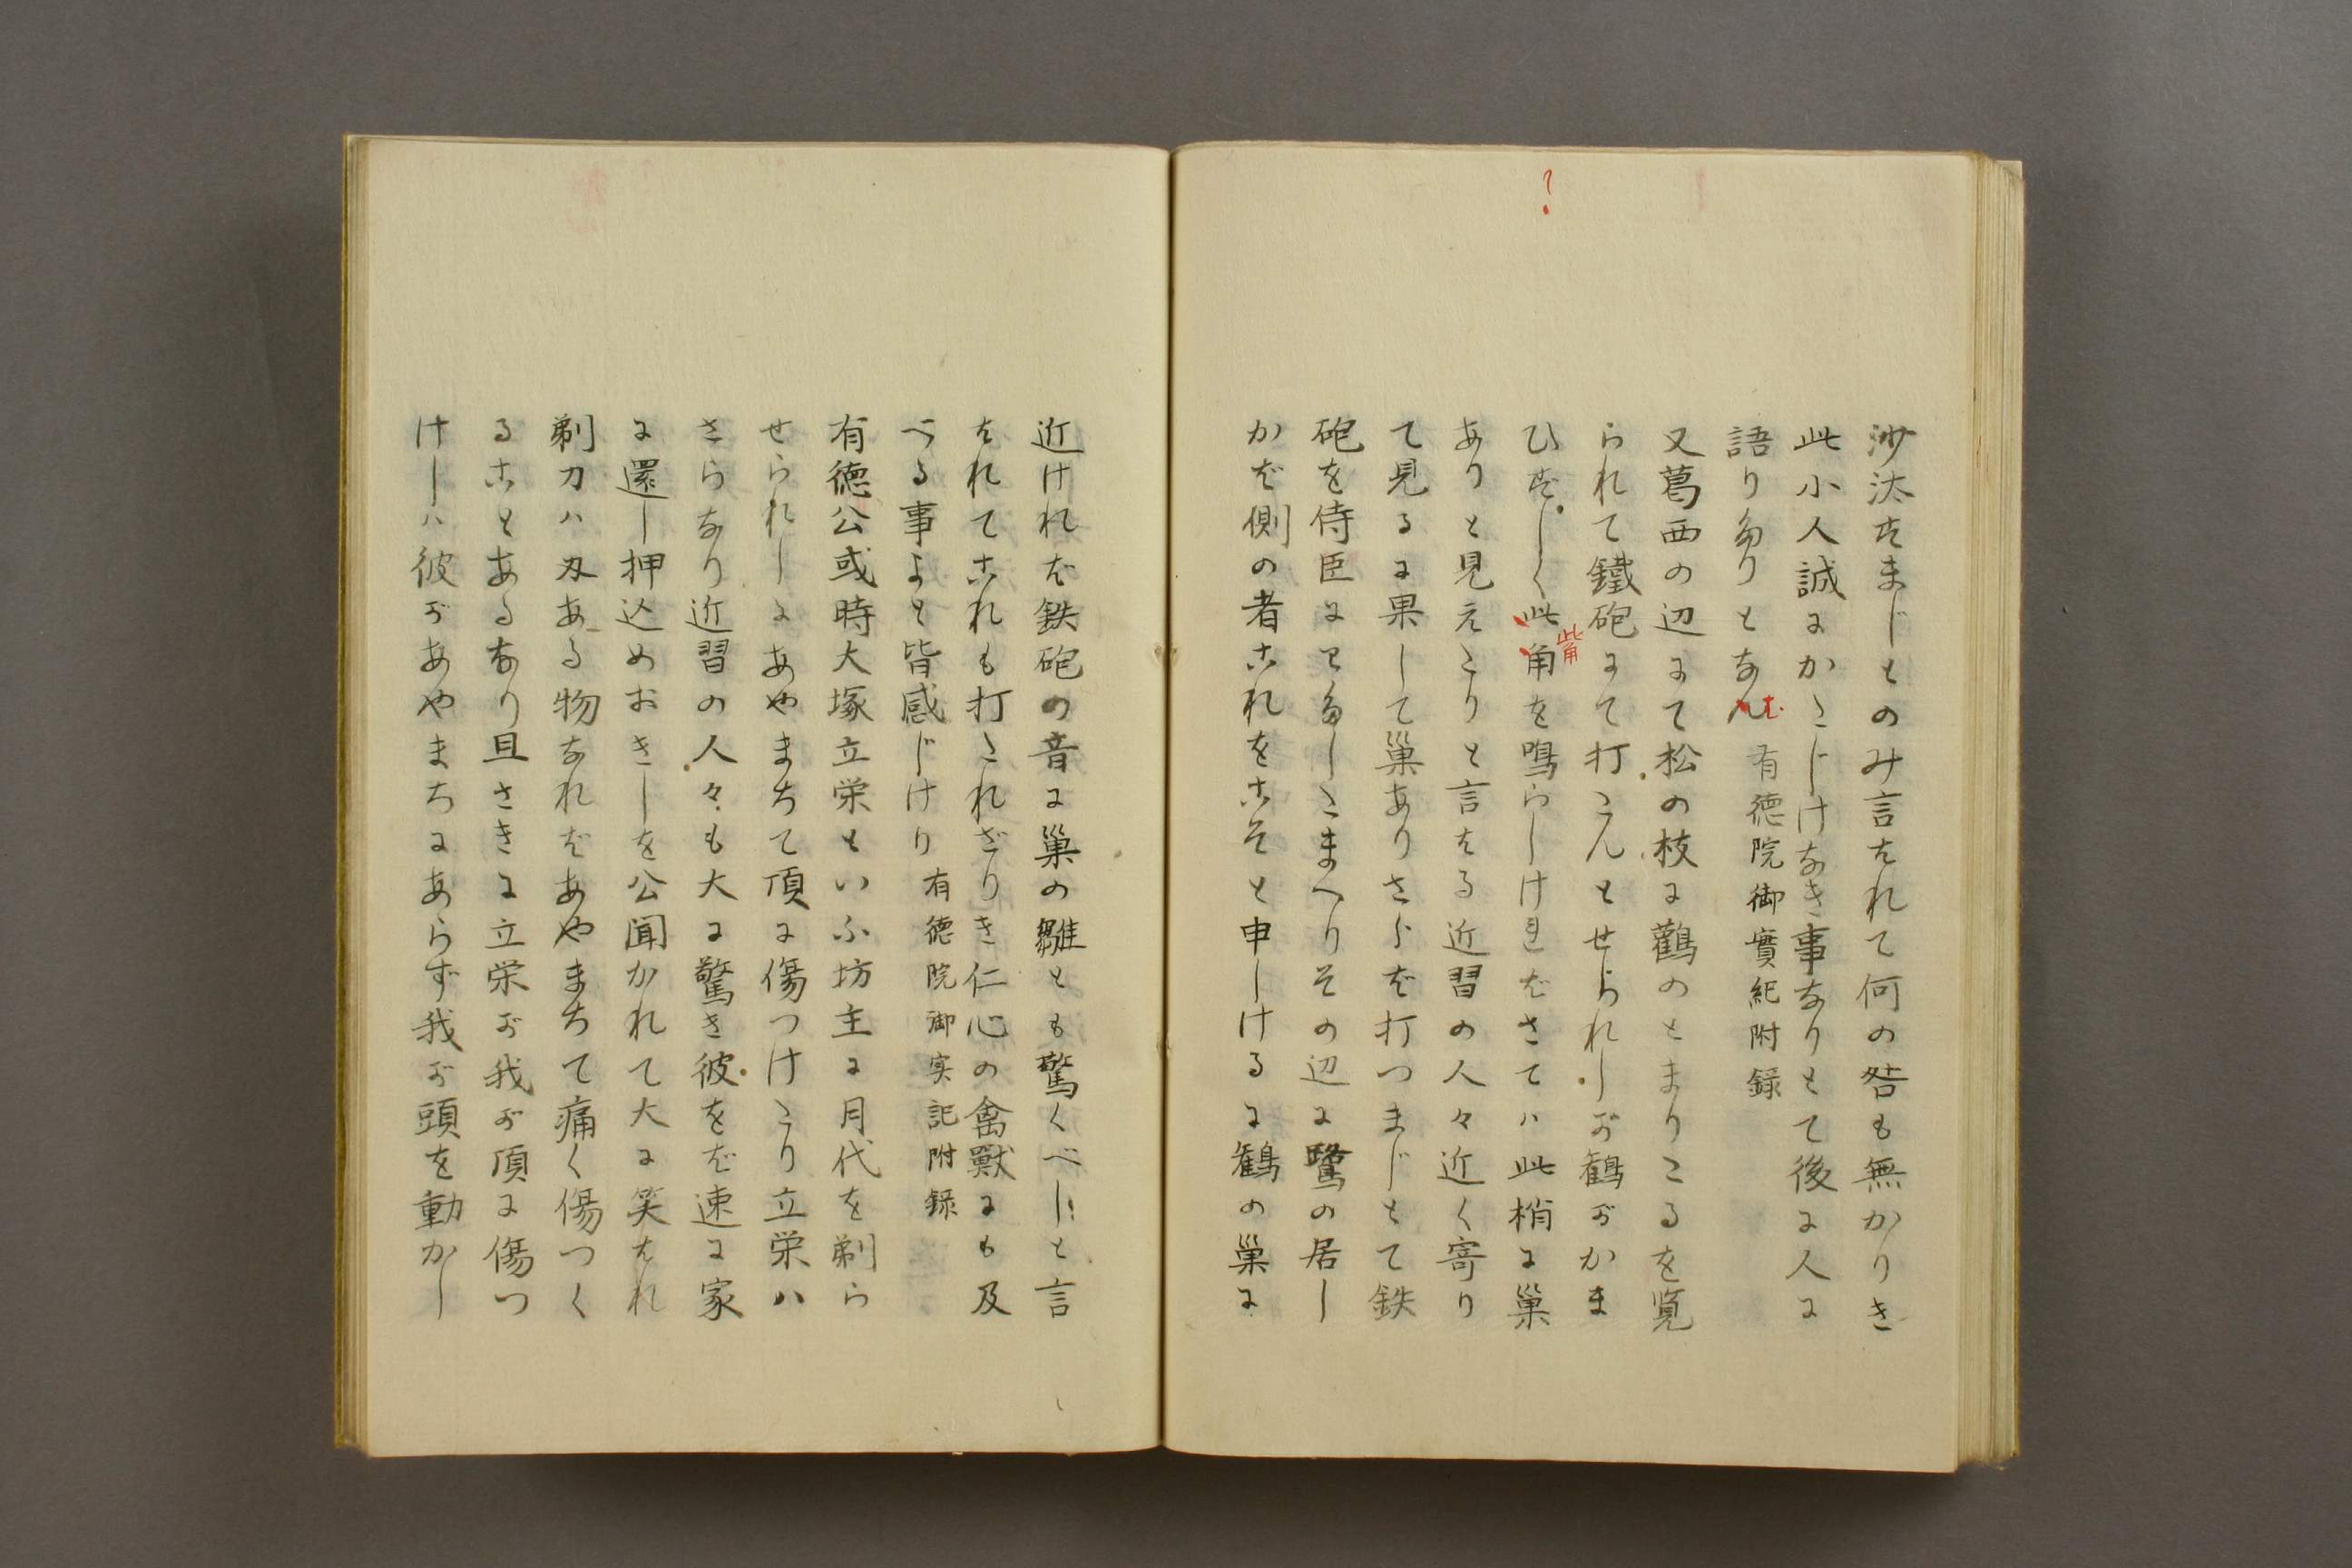 ?
沙汰すまじとのみ言はれて何の咎も無かりき
此小人誠にかたじけなき事なりとて後に人に
語り多りとなんむ 有徳院御實紀附録
又葛西の辺にて松の枝に鸛のとまりたるを覧
られて鐵砲にて打たんとせられしが鸛がかま
びすしく此角を鳴らしければさてハ此梢に巣
觜
ありと見えたりと言へる近習の人々近く寄り
て見るに果して巣ありさらば打つまじとて鉄
砲を侍臣にわたしたまへりその辺に鷺の居し
かば側の者これをこそと申しけるに鸛の巣に
近ければ鉄砲の音に巣の雛とも驚くべしと言
はれてこれも打たれざりき仁心の禽獣にも及
べる事よと皆感じけり 有徳院御実記附録
有徳公或時大塚立栄といふ坊主に月代を剃ら
せられしにあやまちて頂に傷つけたり立栄ハ
さらなり近習の人々も大に驚き彼をば速に家
に還し押込めおきしを公聞かれて大に笑はれ
剃刀ハ刄ある物なればあやまちて痛く傷つく
ることあるなり且さきに立栄が我が頂に傷つ
けしハ彼があやまちにあらず我が頭を動かし